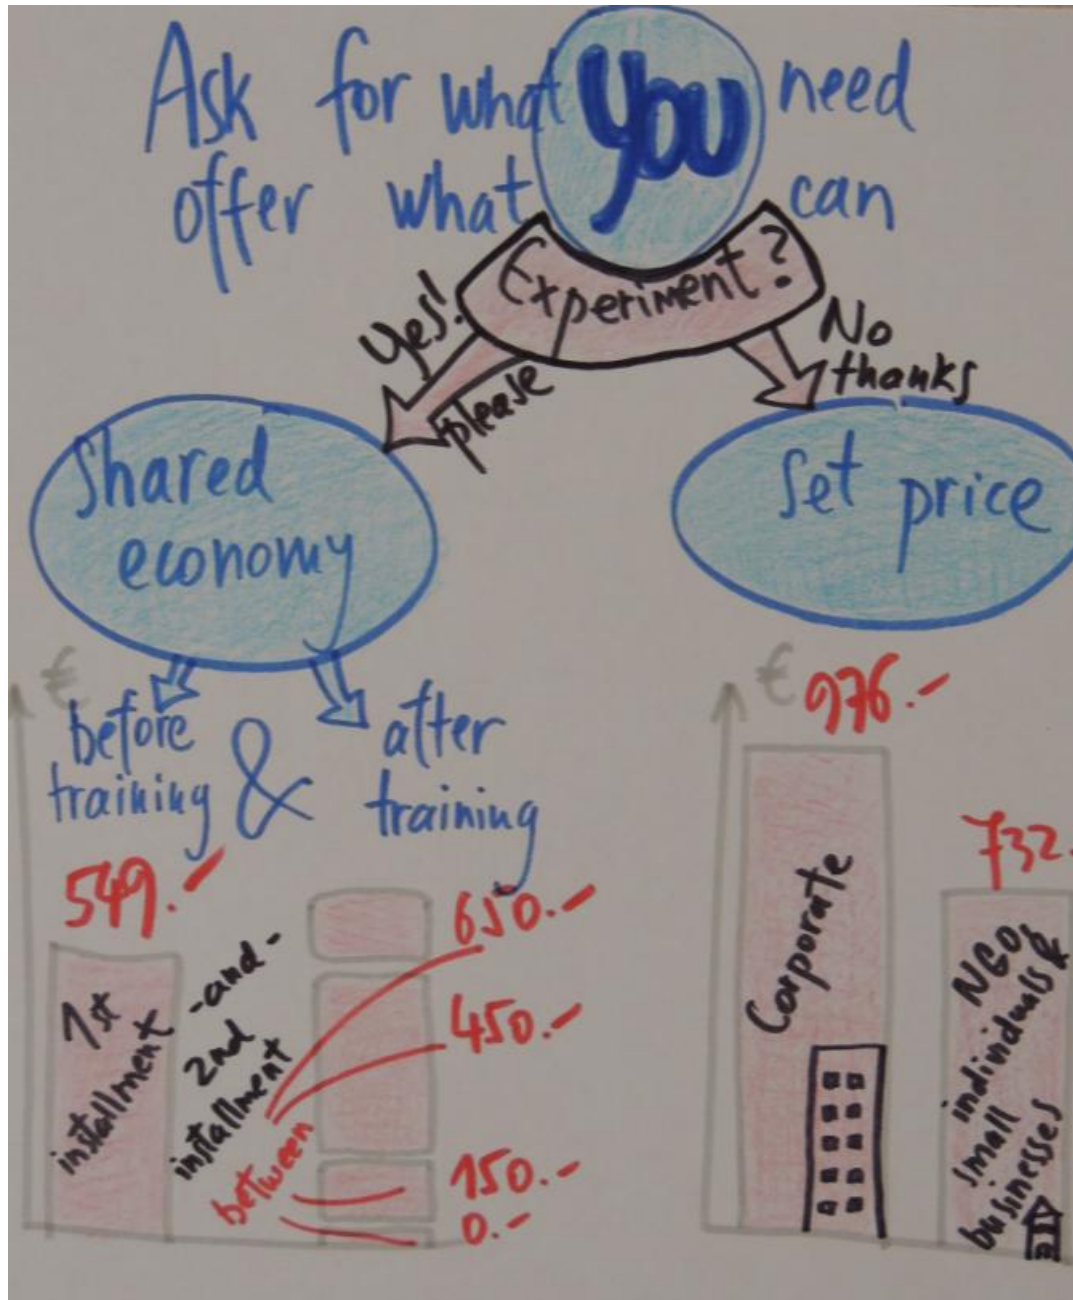 Ask for what you need
offer what can
Experiment?
Yes!
please
No
thanks
shared
economy
Set price
before
training
&
after
training
€
549.-
1st
installment
-and-
2nd
installment
between
650.-
450.-
150.-
0.-
€
976.-
Corporate
732.
NGOs
individuals &
small
businesses